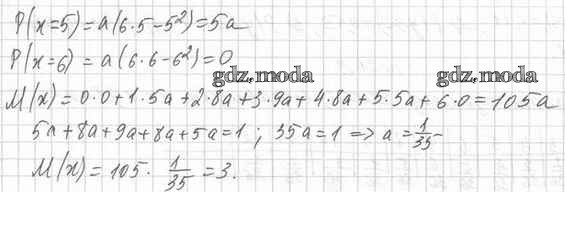 P(x=5)=a(6·5-5²)=5a
P(x=6)=a(6·6-6²)=0
gdz.moda gdz.moda
M(x)=0·0+1·5a+2·8a+3·9a+4·8a+5·5a+6·0=105a
5a+8a+9a+8a+5a=1; 35a=1 => a=1/35
M(x)=105·1/35=3.